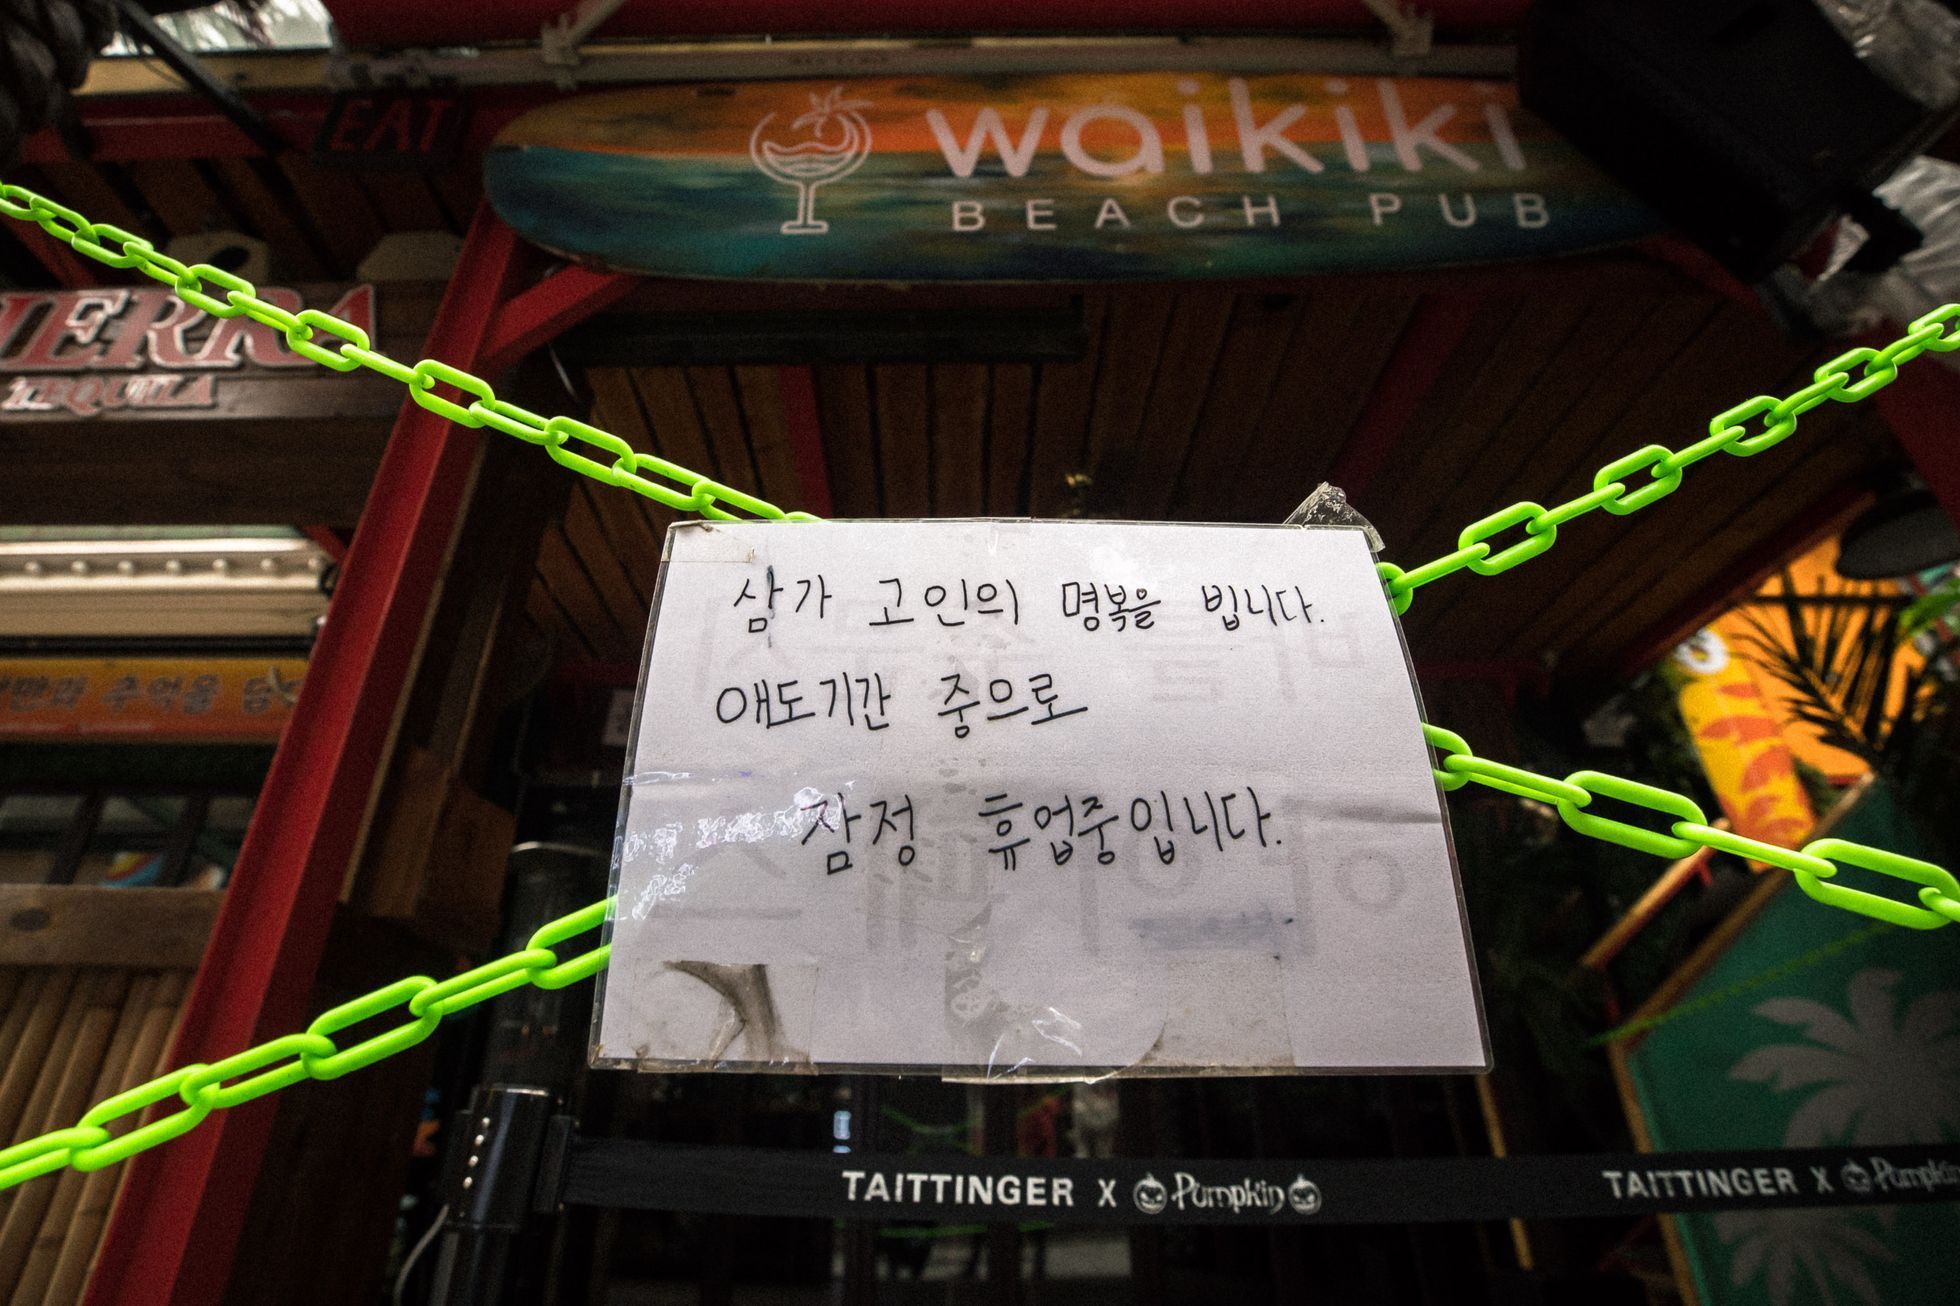 EAT
waikiki
BEACH PUB
TEQUILA
추억을
삼가 고인의 명복을 빕니다.
애도기간 중으로
잠정 휴업중입니다.
TAITTINGER X Pumpkin
TAITTINGER X Pumpkin